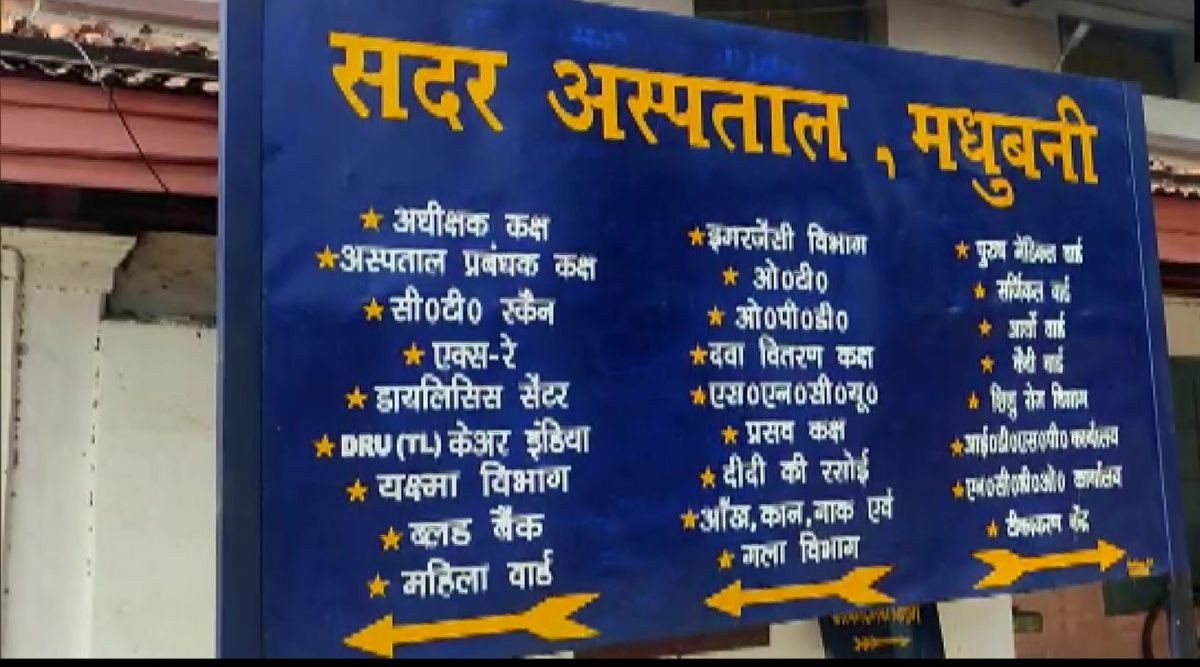 सदर अस्पताल , मधुबनी
★ अधीक्षक कक्ष
★ अस्पताल प्रबंधक कक्ष
★ सी०टी० स्कैन
★ एक्स-रे
★ डायलिसिस सेंटर
★ DRU (TL) केअर इंडिया
★ यक्ष्मा विभाग
★ ब्लड बैंक
★ महिला वार्ड
★ इमरजेंसी विभाग
★ ओ०टी०
★ ओ०पी०डी०
★ दवा वितरण कक्ष
★ एस०एन०सी०यू०
★ प्रसव कक्ष
★ दीदी की रसोई
★ आँख,कान,नाक एवं
★ गला विभाग
★ पुरुष मेडिकल वार्ड
★ सर्जिकल वार्ड
★ वार्ड
★ कैदी वार्ड
★ शिशु रोग विभाग
★ आई०डी०एस०पी० कार्यालय
★ कार्यालय
★ टीकाकरण केंद्र